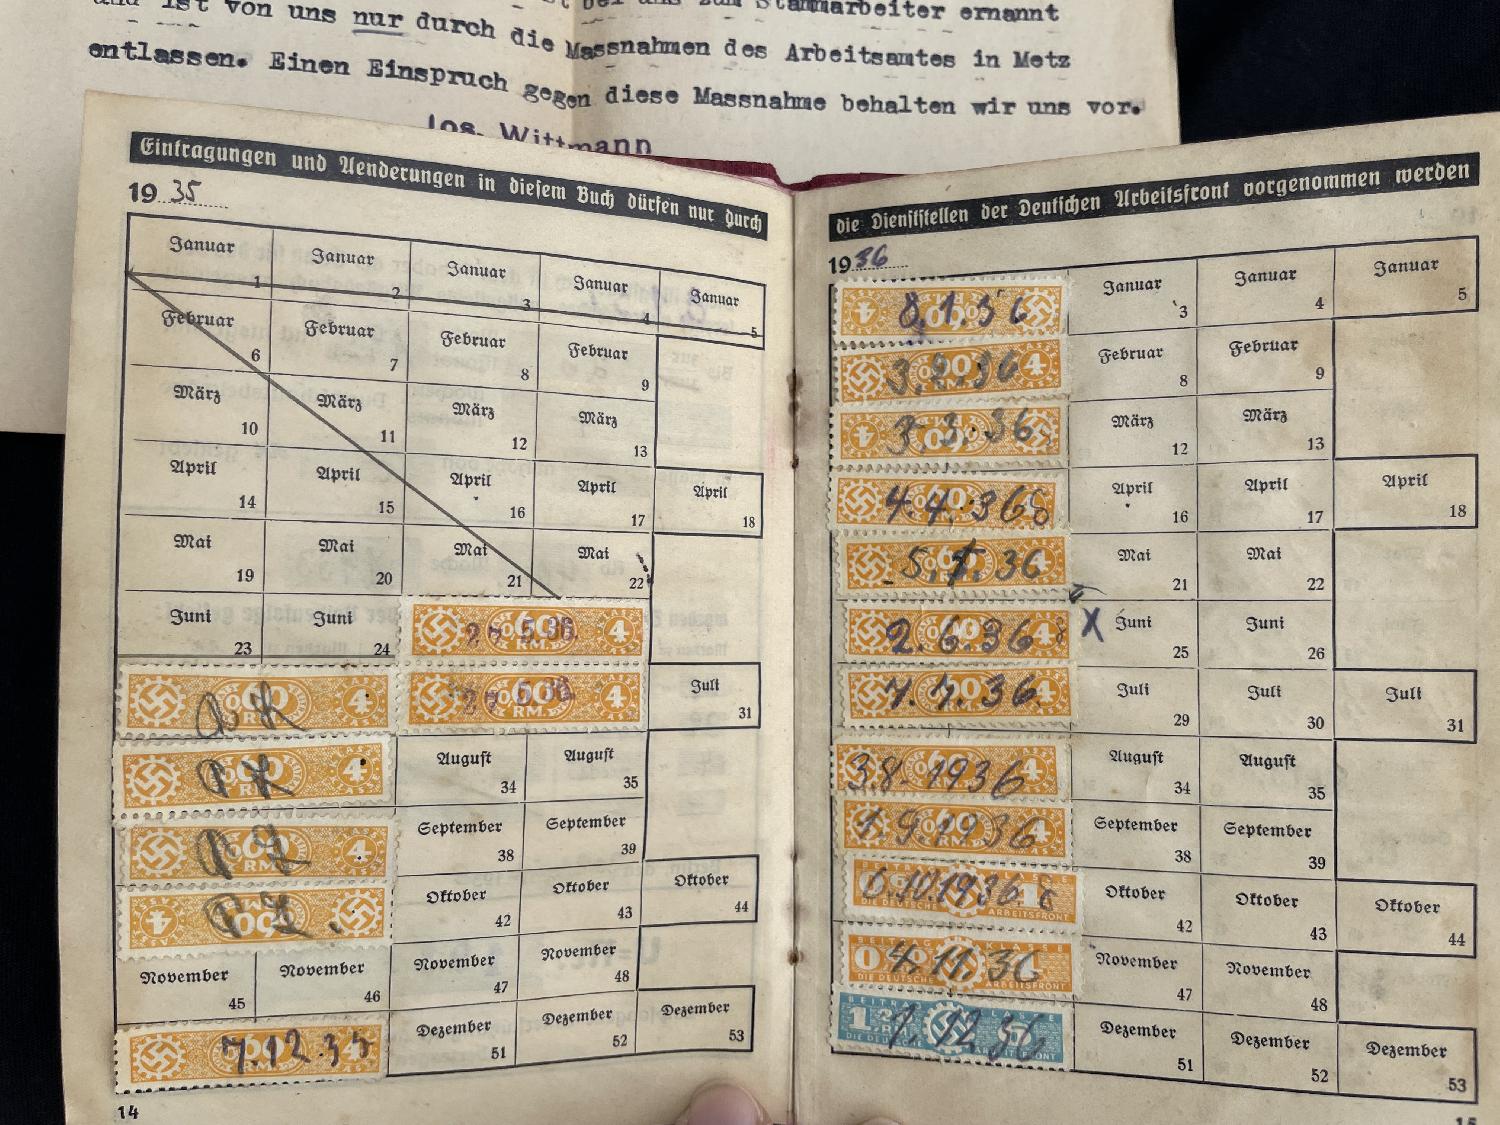 ist von uns nur durch die Massnahmen des Arbeitsamtes in Metz
zum Stammarbeiter ernannt
entlassen. Einen Einspruch gegen diese Massnahme behalten wir uns vor.
Jos. Wittmann
Eintragungen und Aenderungen in diesem Buch dürfen nur durch
1935
Januar 1 Januar 2 Januar 3 Januar 4 Januar 5
Februar 6 Februar 7 Februar 8 Februar 9
März 10 März 11 März 12 März 13
April 14 April 15 April 16 April 17 April 18
Mai 19 Mai 20 Mai 21 Mai 22
Juni 23 Juni 24 60 RM. 4 27. 5. 36.
60 4 60 RM. 4 27. 5. 36. Juli 31
60 RM. 4 August 34 August 35
60 RM. 4 September 38 September 39
60 4 Oktober 42 Oktober 43 Oktober 44
November 45 November 46 November 47 November 48
7.12.35 4 Dezember 51 Dezember 52 Dezember 53
14
die Dienststellen der Deutschen Arbeitsfront vorgenommen werden
1936
8.1.36 Januar 3 Januar 4 Januar 5
3.2.36 4 Februar 8 Februar 9
3.3.36 4 März 12 März 13
4.4.36 April 16 April 17 April 18
5.5.36 4 Mai 21 Mai 22
2.6.36 X Juni 25 Juni 26
7.7.36 4 Juli 29 Juli 30 Juli 31
3.8.1936 4 August 34 August 35
1.9.1936 4 September 38 September 39
6.10.1936 DIE DEUTSCHE ARBEITSFRONT Oktober 42 Oktober 43 Oktober 44
BEITRAG KLASSE 4.11.36 DIE DEUTSCHE ARBEITSFRONT November 47 November 48
BEITRAG 1.12.36 Dezember 51 Dezember 52 Dezember 53
15